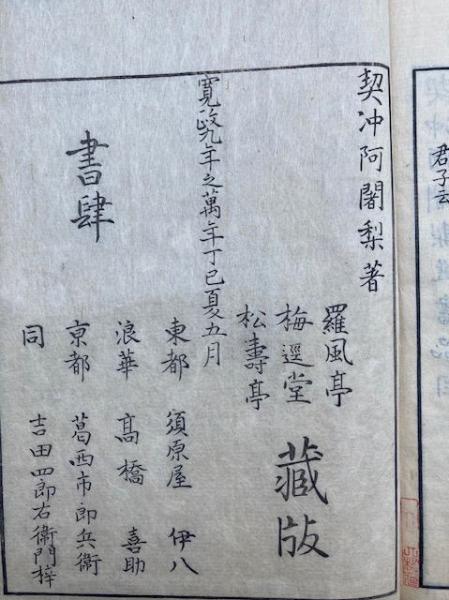 君子云
契冲阿闍梨著
羅風亭
梅逕堂
松壽亭
藏版
寛政九年之萬年丁巳夏五月
書肆
東都 須原屋 伊八
浪華 高橋 喜助
京都 葛西市郎兵衛
同 吉田四郎右衛門梓